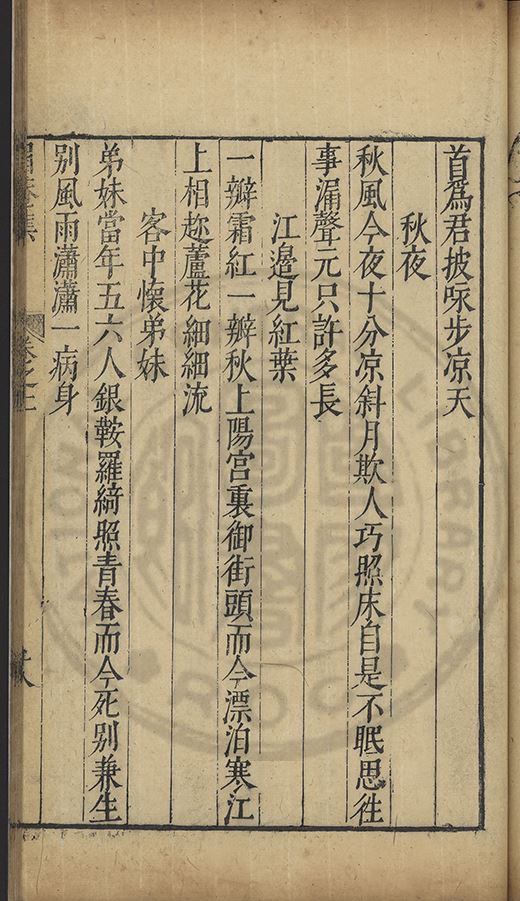 首為君披咏步凉天
秋夜
秋風今夜十分凉斜月欺人巧照床自是不眠思徃
事漏聲元只許多長
江邉見紅葉
一瓣霜紅一瓣秋上陽宫裏御街頭而今漂泊寒江
上相趂蘆花細細流
客中懷弟妹
弟妹當年五六人銀鞍羅綺照青春而今死别兼生
别風雨瀟瀟一病身